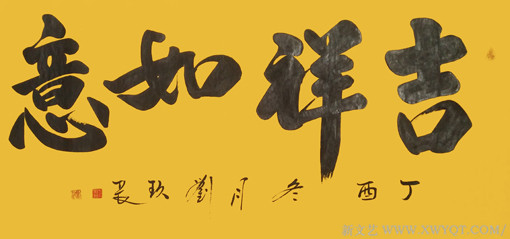 吉祥如意
丁酉冬月劉玖
新文艺 WWW.XWYQT.COM/